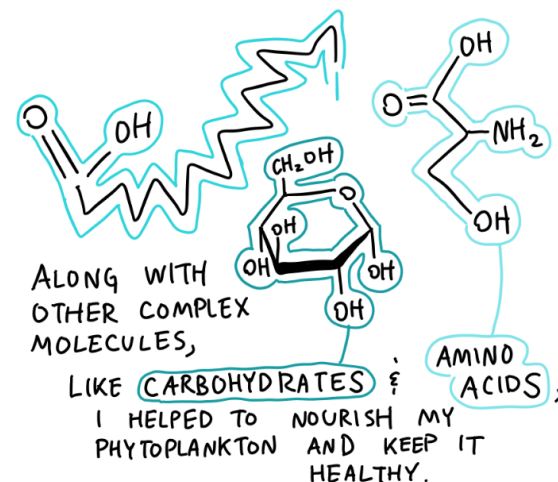 O
OH
OH
O
NH₂
OH
CH₂OH
O
OH
OH
OH
OH
ALONG WITH
OTHER COMPLEX
MOLECULES,
LIKE CARBOHYDRATES &
AMINO
ACIDS,
I HELPED TO NOURISH MY
PHYTOPLANKTON AND KEEP IT
HEALTHY.